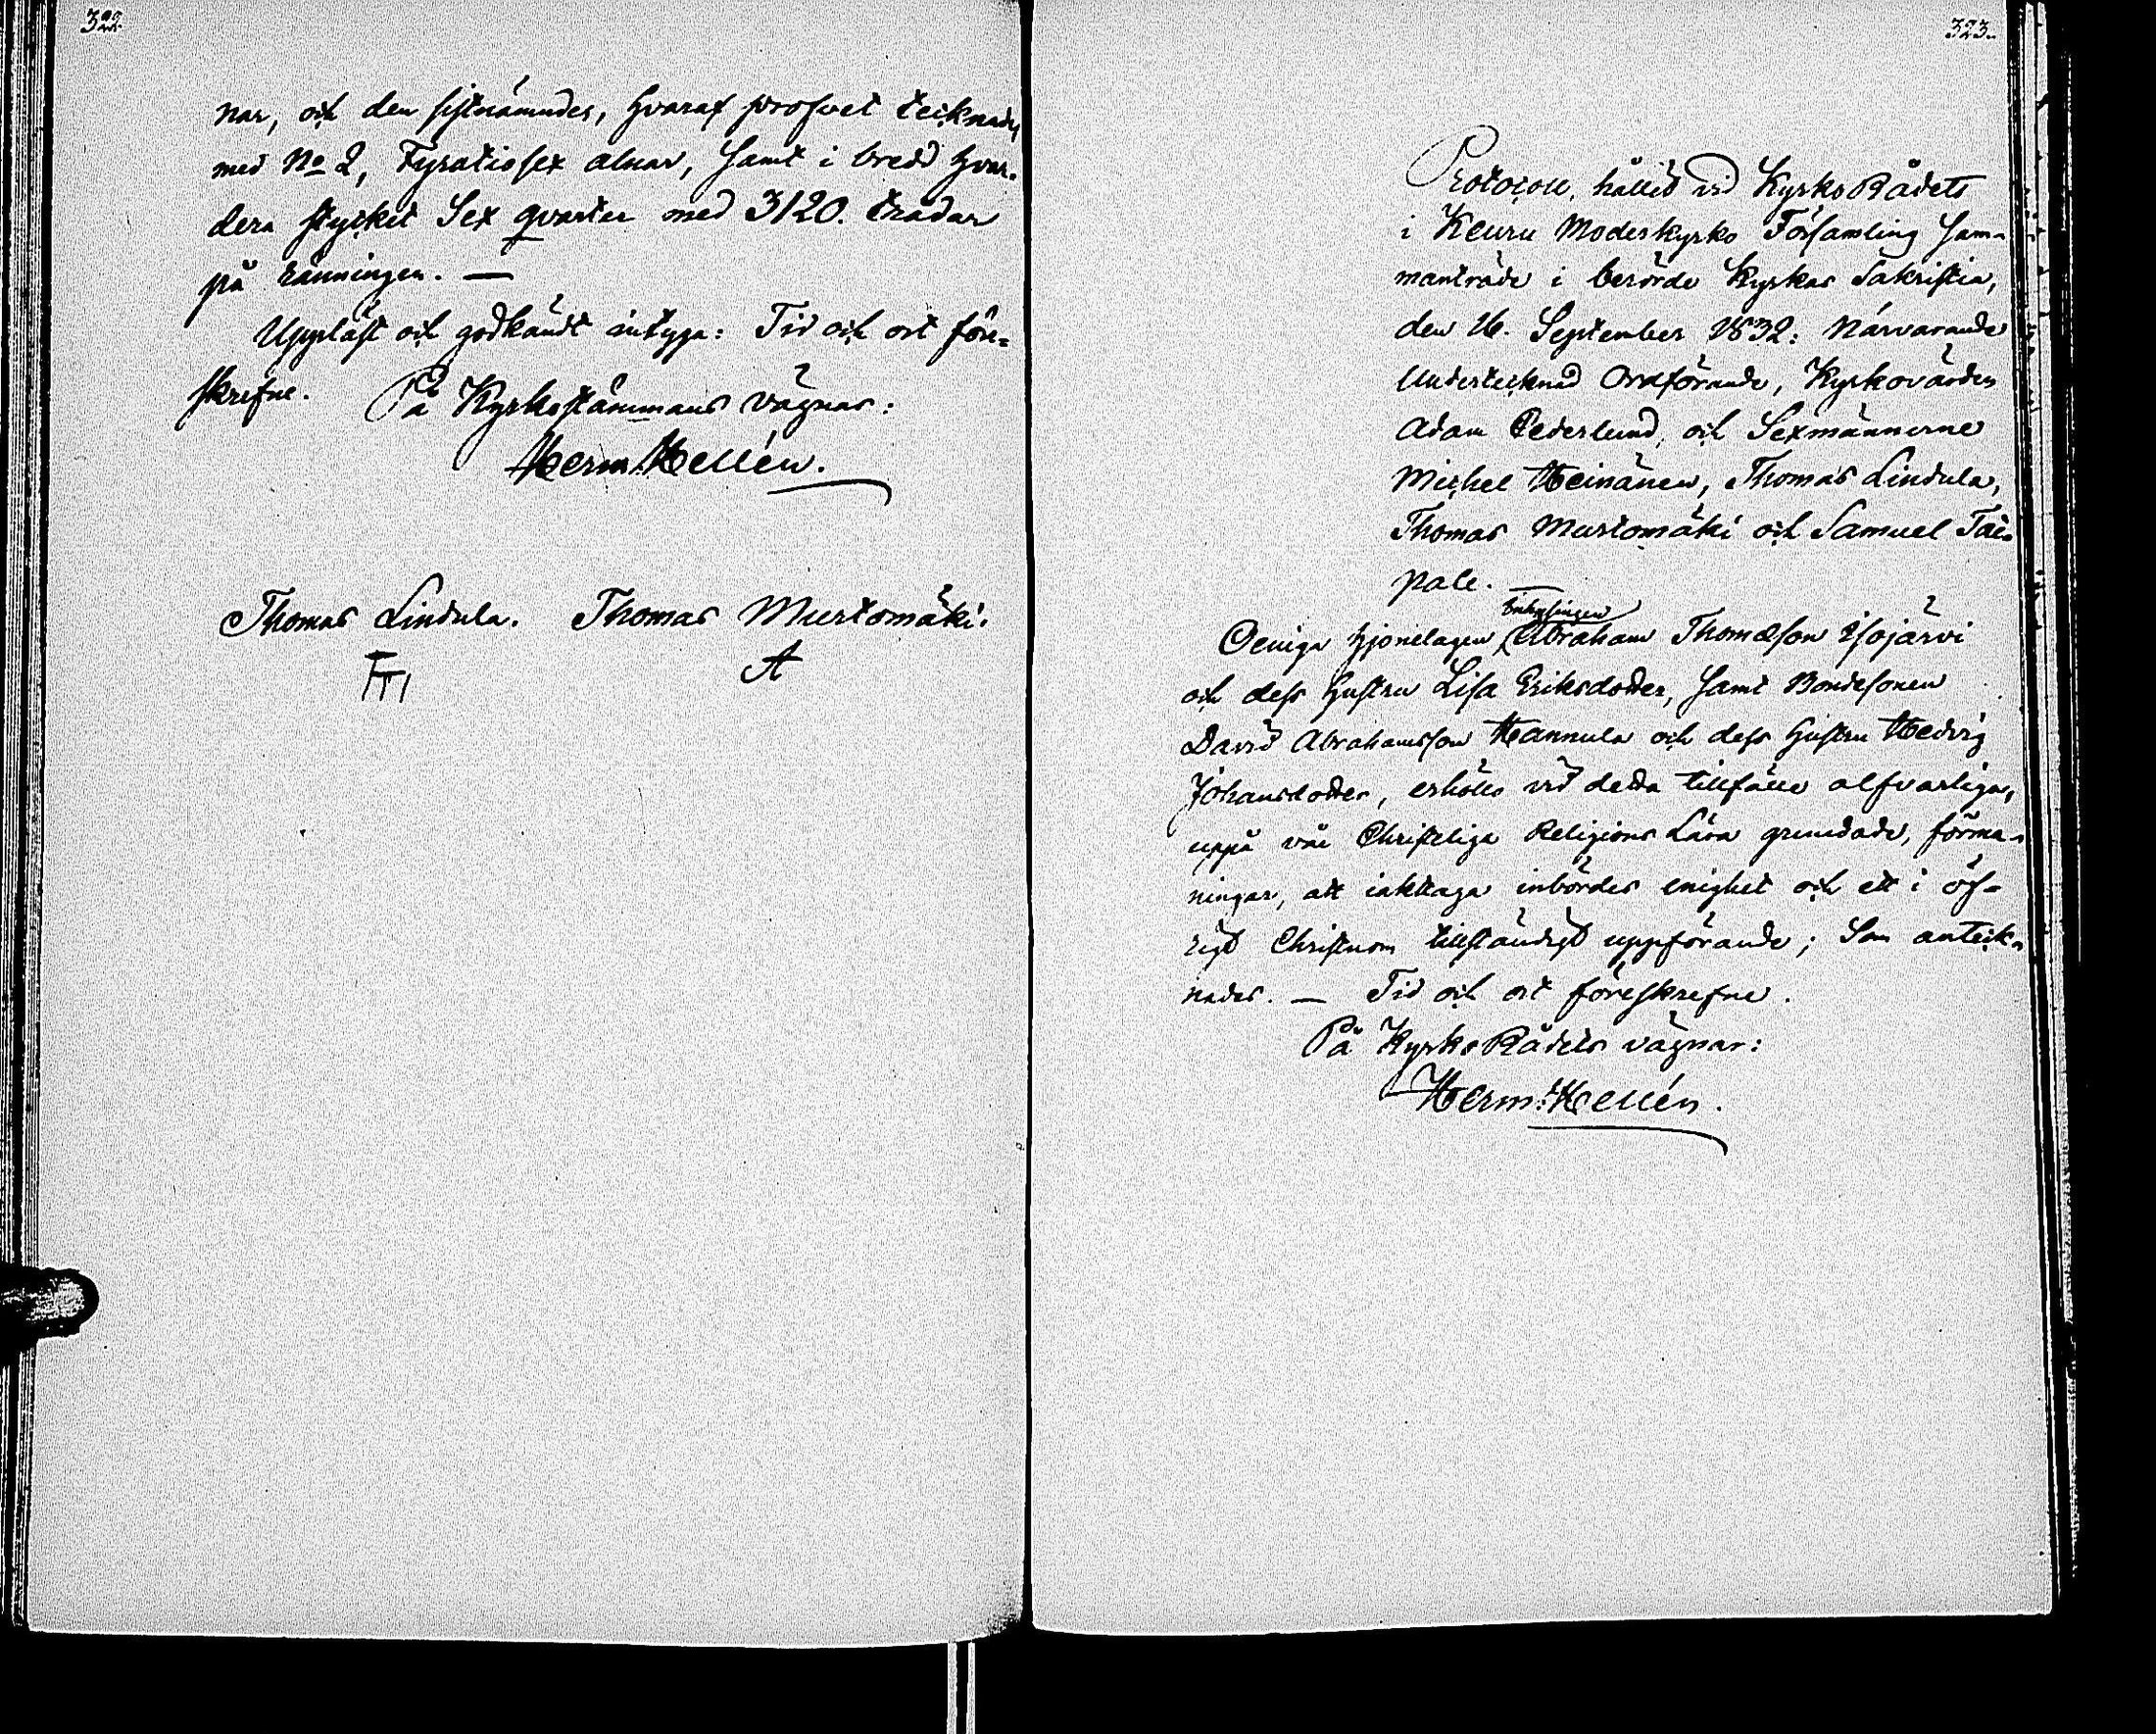 322.
nar, och den sistnämndes, hvaraf profvet tecknades
med No 2, Fyratiosex alnar, samt i bredd hvar-
dera stycket Sex qvarter med 3120. trådar
på ränningen. —
Uppläst och godkändt intyga: Tid och ort före-
skrefne. På Kyrkostämmans vägnar:
Herm. Hellén.
Thomas Lindula. Thomas Murtomäki.
A
323.
Protocoll, hållit vid KyrkoRådets
i Keuru Moderkyrko Församling Sam-
manträde i berörde Kyrkas Sakristia,
den 16. September 1832: Närvarande
Undertecknad Ordförande, Kyrkovärden
Adam Cederlund, och Sexmännerne
Michel Heinänen, Thomas Lindula,
Thomas Murtomäki och Samuel Tai-
pale. —
Inhysingen
Oeniga hjonelagen Abraham Thomæson Isojärvi
och dess hustru Lisa Eriksdotter, samt Bondesonen
David Abrahamsson Hannula och dess hustru Hedvig
Johansdotter, erhöllo vid detta tillfälle alfvarliga,
uppå vår Christeliga Religions Lära grundade, förma-
ningar, att iakttaga inbördes enighet och ett i öf-
rigt Christnom tillständigt uppförande; Som anteck-
nades. — Tid och ort föreskrefne.
På KyrkoRådets vägnar:
Herm: Hellén.